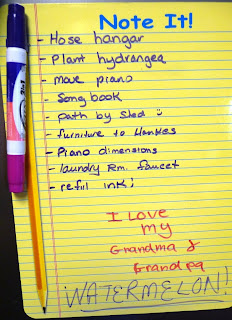 Note It!
- Hose hangar
- Plant hydrangea
- Move piano
- Song book
- path by Shed
- furniture to
- Piano dimensions
- laundry Rm. faucet
- refill ink
I Love
my
Grandma &
Grandpa
WATERMELON!